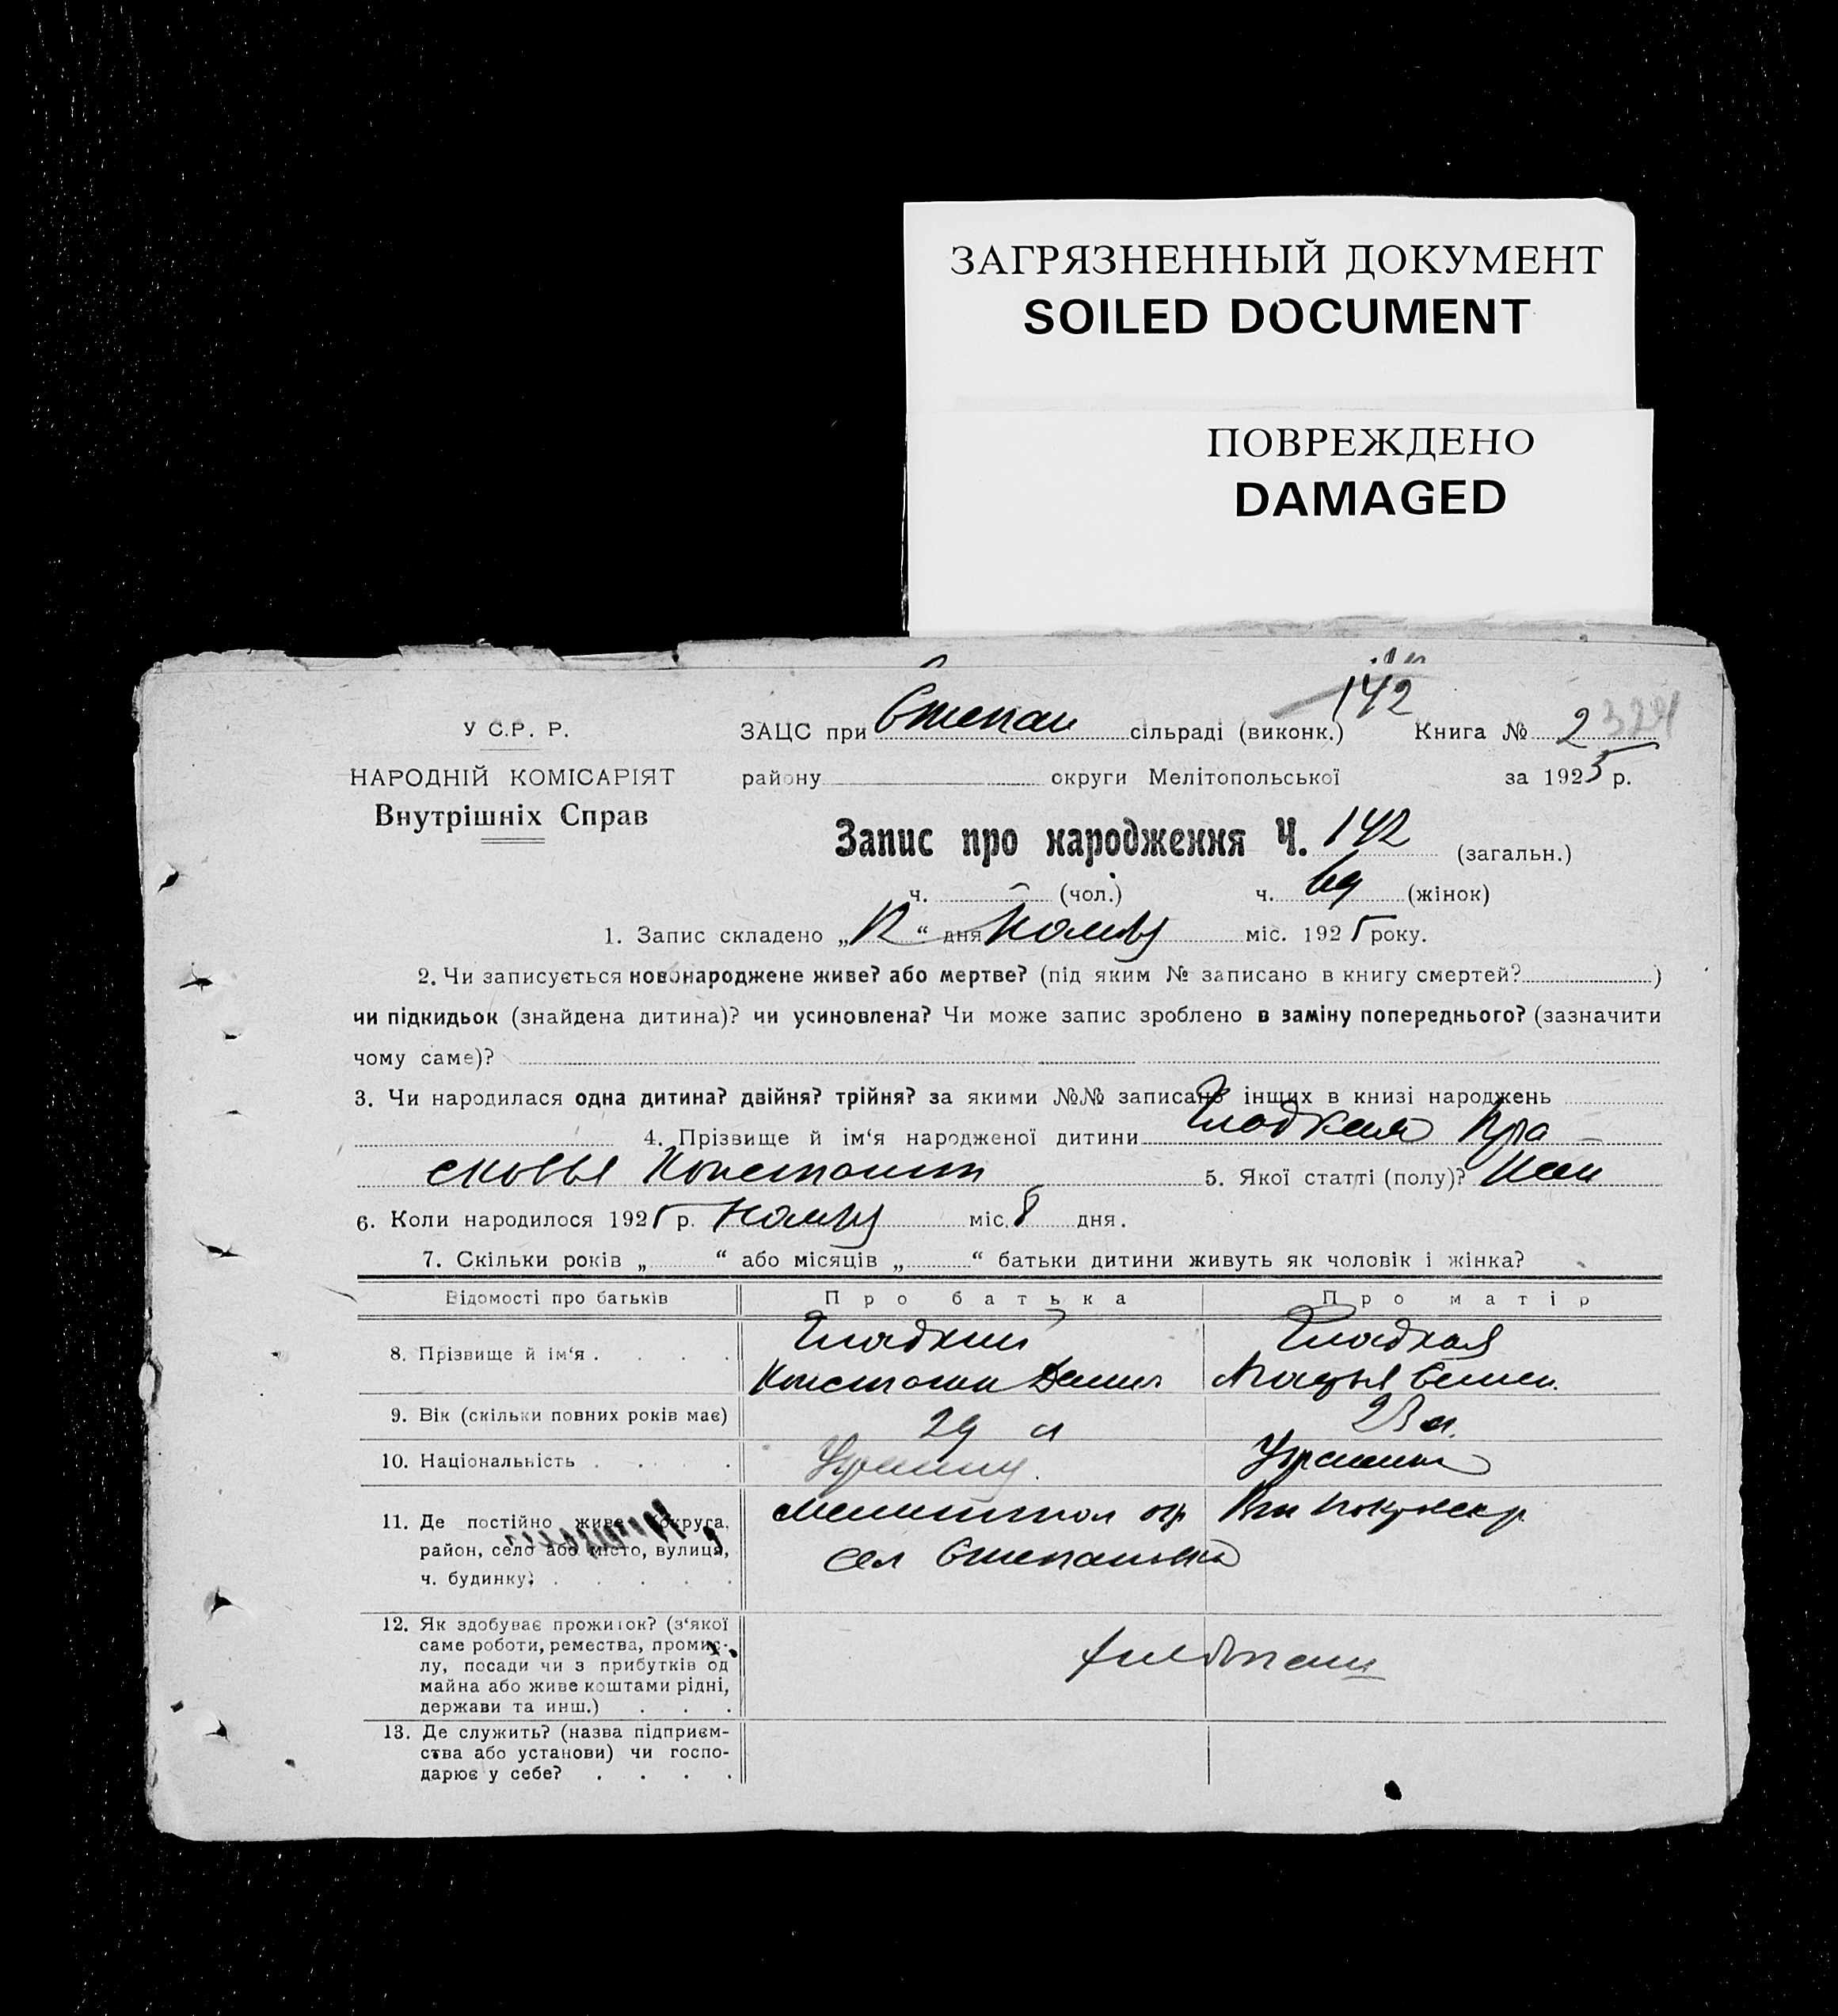 ЗАГРЯЗНЕННЫЙ ДОКУМЕНТ
SOILED DOCUMENT
ПОВРЕЖДЕНО
DAMAGED
142
У С.Р. Р.
ЗАЦС при Степан сільраді (виконк.) Книга № 2
НАРОДНІЙ КОМІСАРІЯТ
району округи Мелітопольської за 1925 р.
Внутрішніх Справ
Запис про народження Ч. 142 (загальн.)
ч. (чол.) ч. 69 (жінок)
1. Запис складено „ “ дня міс. 1925 року.
2. Чи записується новонароджене живе? або мертве? (під яким № записано в книгу смертей? )
чи підкидьок (знайдена дитина)? чи усиновлена? Чи може запис зроблено в заміну попереднього? (зазначити
чому саме)?
3. Чи народилася одна дитина? двійня? трійня? за якими №№ записано інших в книзі народжень
4. Прізвище й ім‘я народженої дитини Гладкая Пра
сковья Констант 5. Якої статті (полу)? жен
6. Коли народилося 1925 р. міс. 8 дня.
7. Скільки років „ “ або місяців „ “ батьки дитини живуть як чоловік і жінка?
Відомості про батьків Про батька Про матір
8. Прізвище й ім‘я . . . . . Гладкий Гладкая
Константин Семен.
9. Вік (скільки повних років має) 29 л 23 л.
10. Національність . . . . .
11. Де постійно живе (округа, Мелитопол окр
район, село або місто, вулиця, сел Степановка
ч. будинку) . . . . .
12. Як здобуває прожиток? (з‘якої
саме роботи, ремества, промис-
лу, посади чи з прибутків од
майна або живе коштами рідні,
держави та инш.) . . .
хлебопаш
13. Де служить? (назва підприєм-
ства або установи) чи госпо-
дарює у себе? . . . .